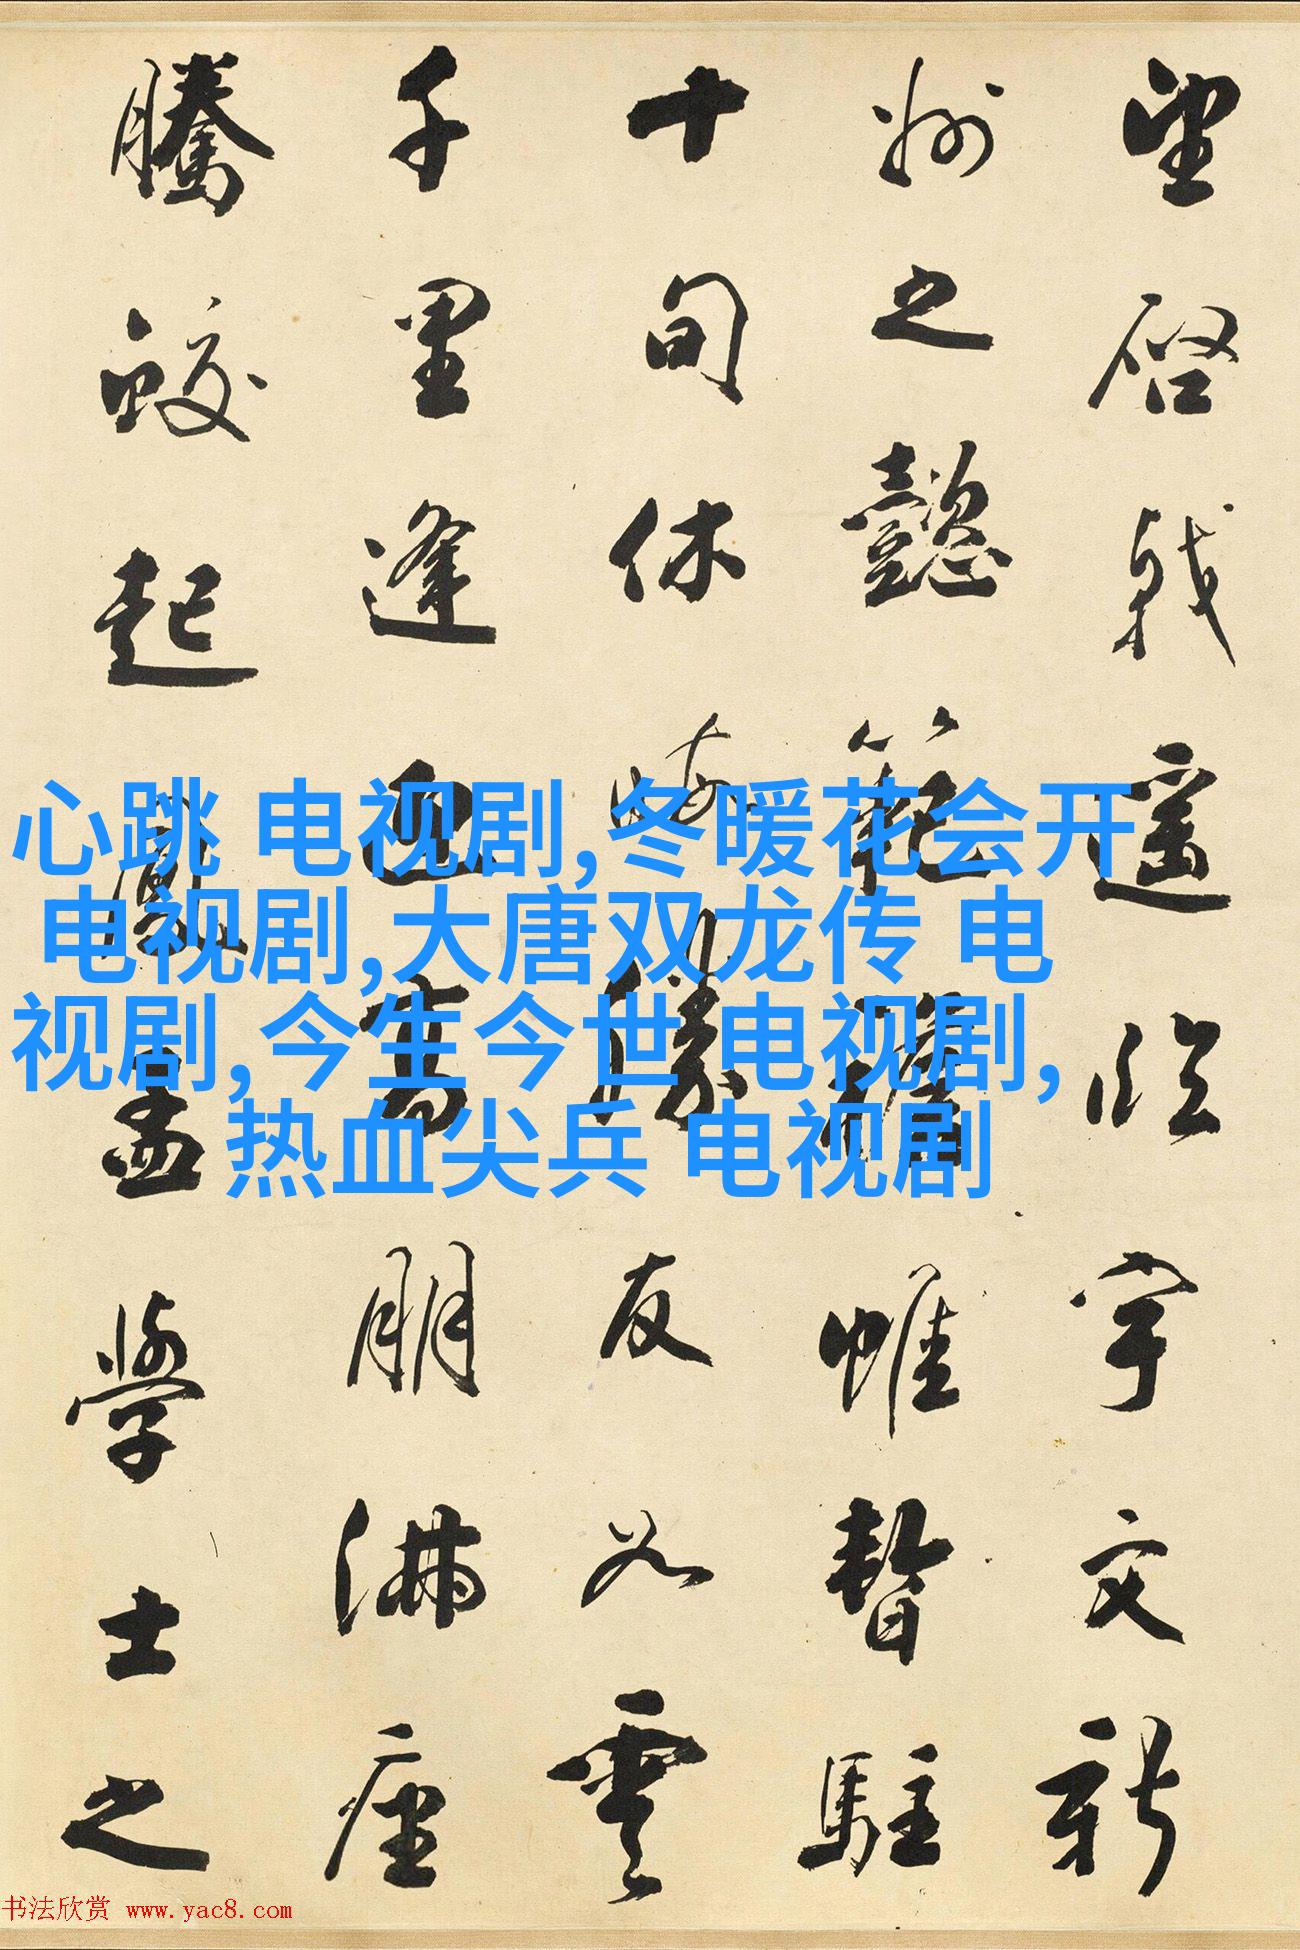 望啓戟遥臨宇文新
州之懿範襜帷暫駐
十旬休暇勝友如雲
千里逢迎高朋滿座
騰蛟起鳳孟學士之
心跳 电视剧,冬暖花会开
电视剧,大唐双龙传 电
视剧,今生今世 电视剧,
热血尖兵 电视剧
书法欣赏 www.yac8.com